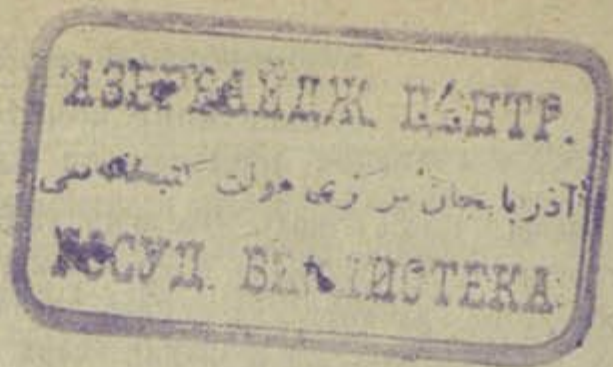 АЗЕРБАЙДЖ. ЦЕНТР.
آذربایجان مرکزی دولت کتبخانه‌سی
ГОСУД. БИБЛИОТЕКА